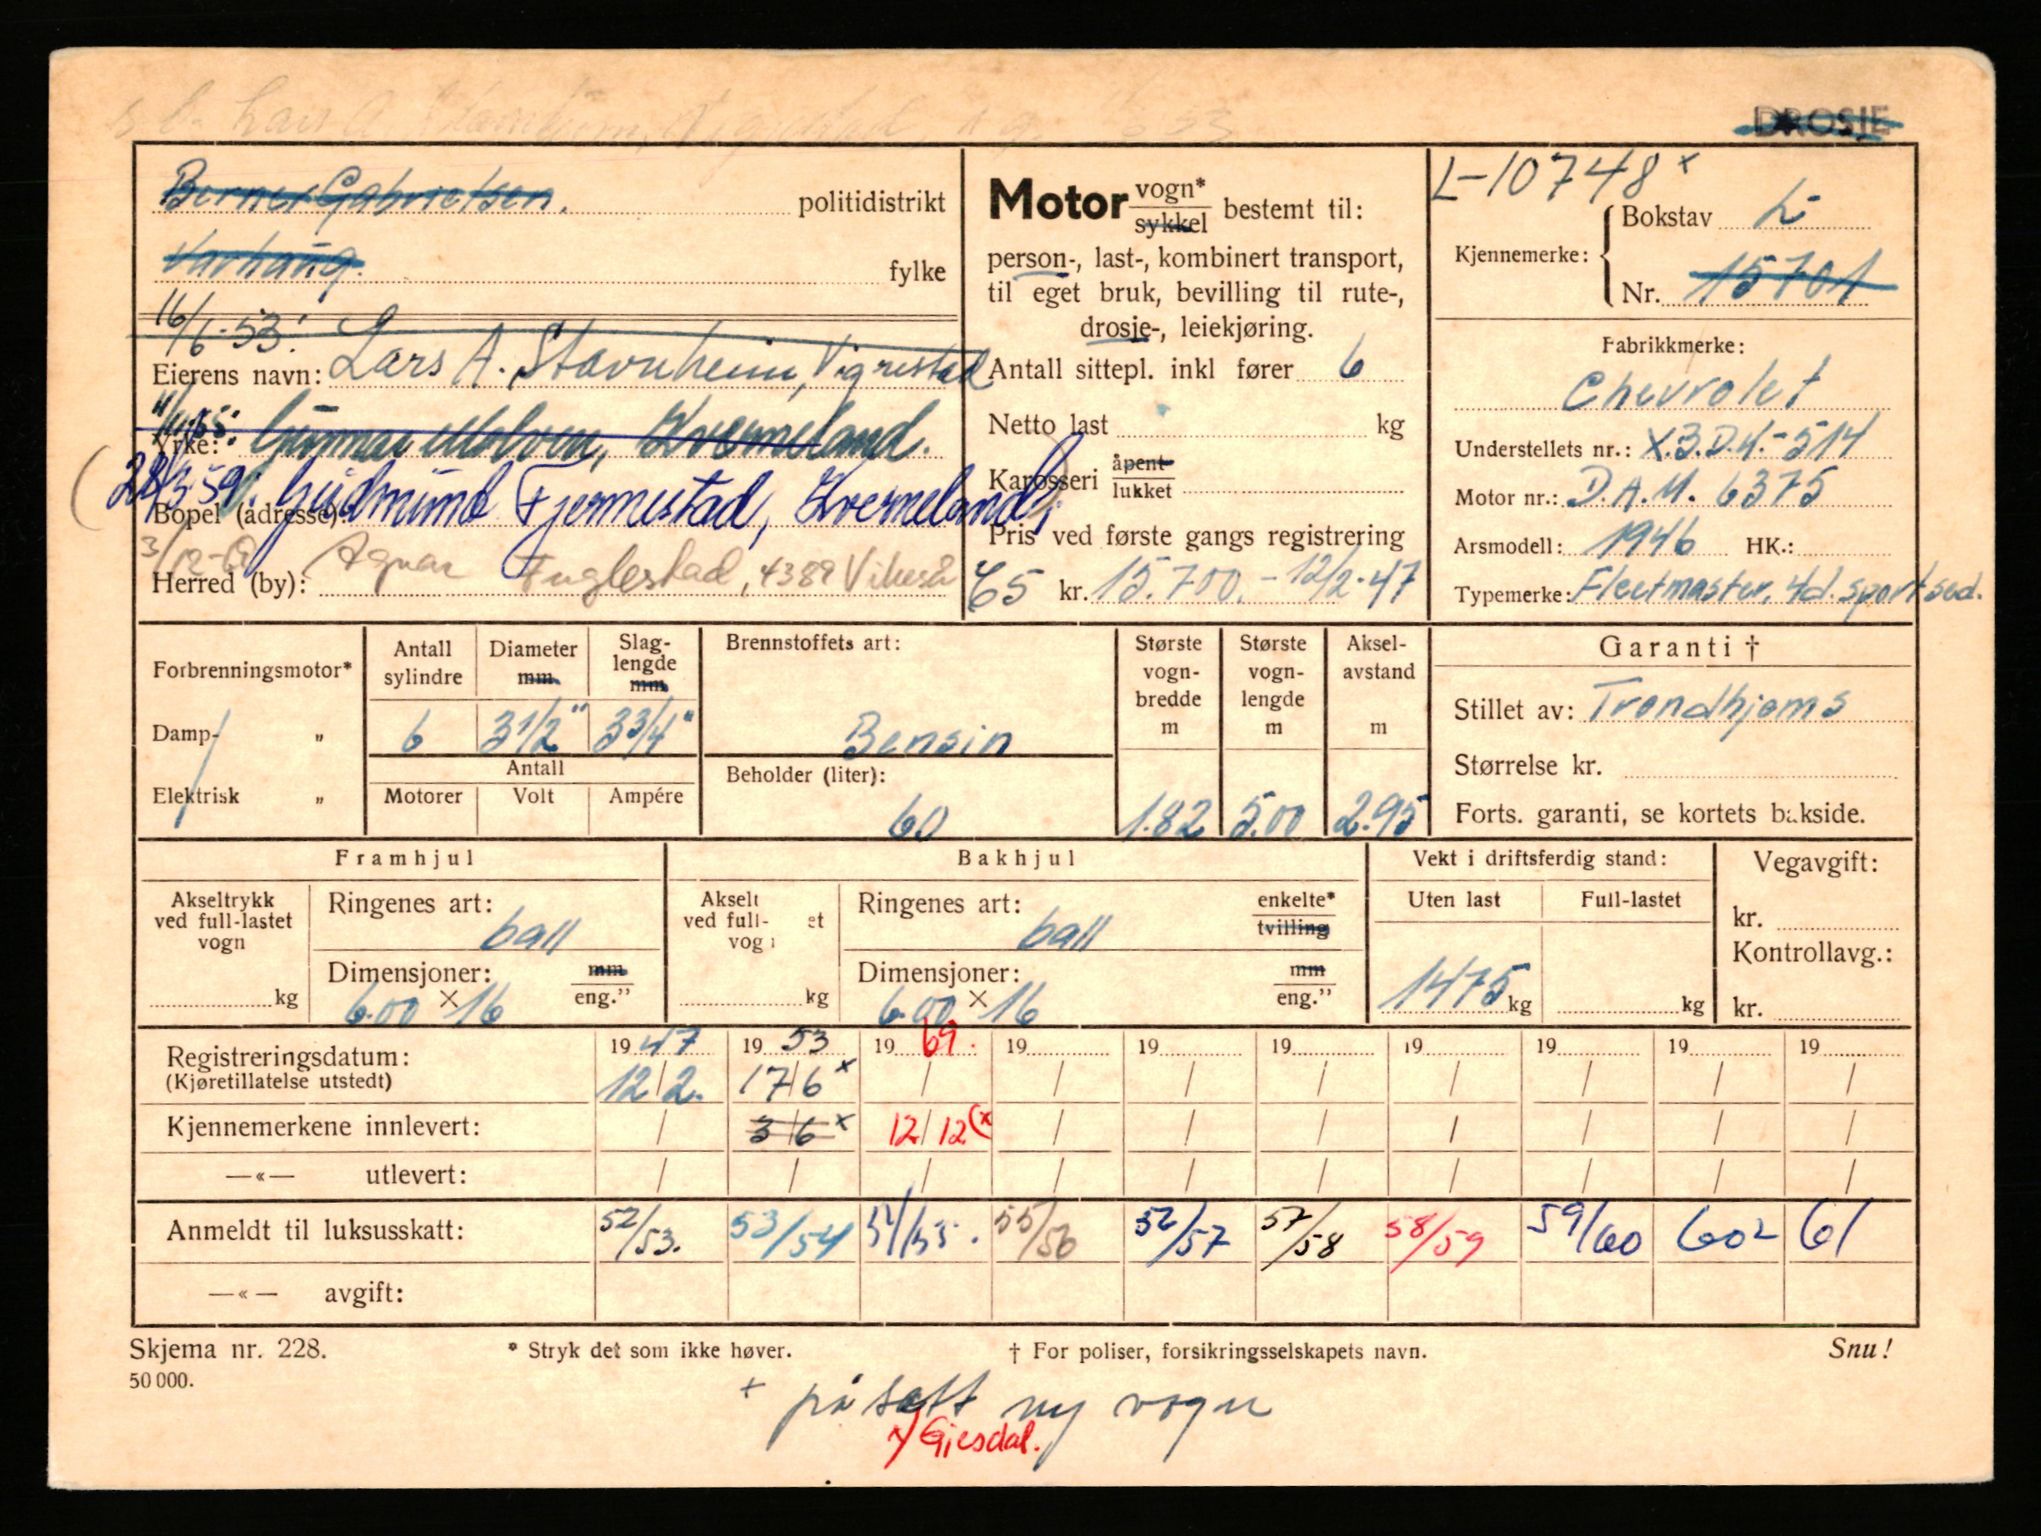 DROSJE
Berner Gabrielsen. politidistrikt
Varhaug. fylke
16/6-53: Lars A. Stavnheim, Vigrestad
Eierens navn:
Gunnar Molven, Kverneland.
Yrke:
28/3-59: Gudmund Fjermestad, Kverneland,
Bopel (adresse):
3/12-
Agnar Fuglestad, 4389 Vikeså
Herred (by):
Motor vogn*
sykkel bestemt til:
person-, last-, kombinert transport,
til eget bruk, bevilling til rute-,
drosje-, leiekjøring.
Antall sittepl. inkl fører 6
Netto last kg
Karosseri åpent
lukket
Pris ved første gangs registrering
65 kr. 15.700.- 12/2-47
L-10748 x
Kjennemerke: Bokstav L-
Nr. 15701
Fabrikkmerke:
Chevrolet
Understellets nr.: X.3.D.4.-514
Motor nr.: D.A.M. 6375
Arsmodell: 1946 HK.:
Typemerke: Fleetmaster, 4d. sport sed.
Forbrenningsmotor*
Damp- "
Elektrisk "
Antall sylindre
6
Diameter mm.
3 1/2"
Slag-lengde mm.
3 3/4"
Antall
Motorer Volt Ampére
Brennstoffets art:
Bensin
Beholder (liter):
60
Største vogn-bredde m
1.82
Største vogn-lengde m
5.00
Aksel-avstand m
2.95
Garanti †
Stillet av: Trondhjems
Størrelse kr.
Forts. garanti, se kortets bakside.
Framhjul
Akseltrykk
ved full-lastet
vogn
kg
Ringenes art:
ball
Dimensjoner: mm
eng."
6.00 × 16
Bakhjul
Akselt
ved full- et
vog
kg
Ringenes art: enkelte*
tvilling
ball
Dimensjoner: mm
eng."
6.00 × 16
Vekt i driftsferdig stand:
Uten last Full-lastet
1475 kg kg
Vegavgift:
kr.
Kontrollavg.:
kr.
Registreringsdatum: 1947 1953 1969. 19 19 19 19 19 19 19
(Kjøretillatelse utstedt) 12/2. 17/6 x / / / / / / / /
Kjennemerkene innlevert: / 3/6 x 12/12 (x / / / / / / /
—«— utlevert: / / / / / / / / / /
Anmeldt til luksusskatt: 52/53. 53/54 54/55. 55/56 56/57 57/58 58/59 59/60 602 61
—«— avgift:
Skjema nr. 228. * Stryk det som ikke høver. † For poliser, forsikringsselskapets navn. Snu!
50 000.
+ påsatt ny vogn
x/ Gjesdal.